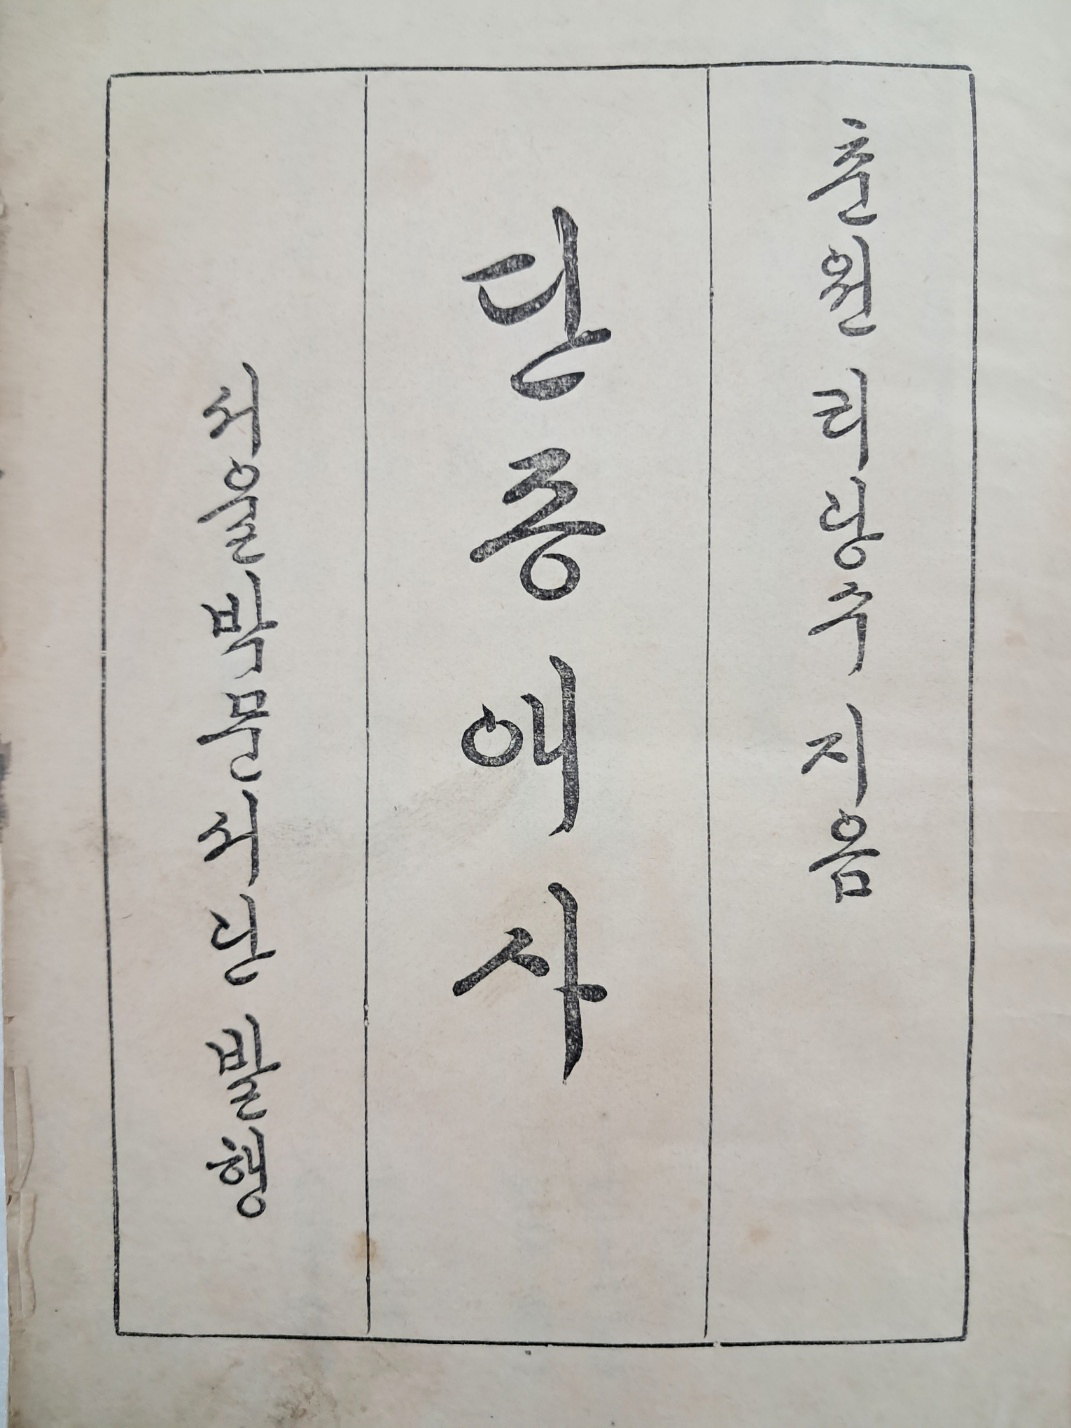 춘원 리광수 지음
단종애사
서울박문서관 발행